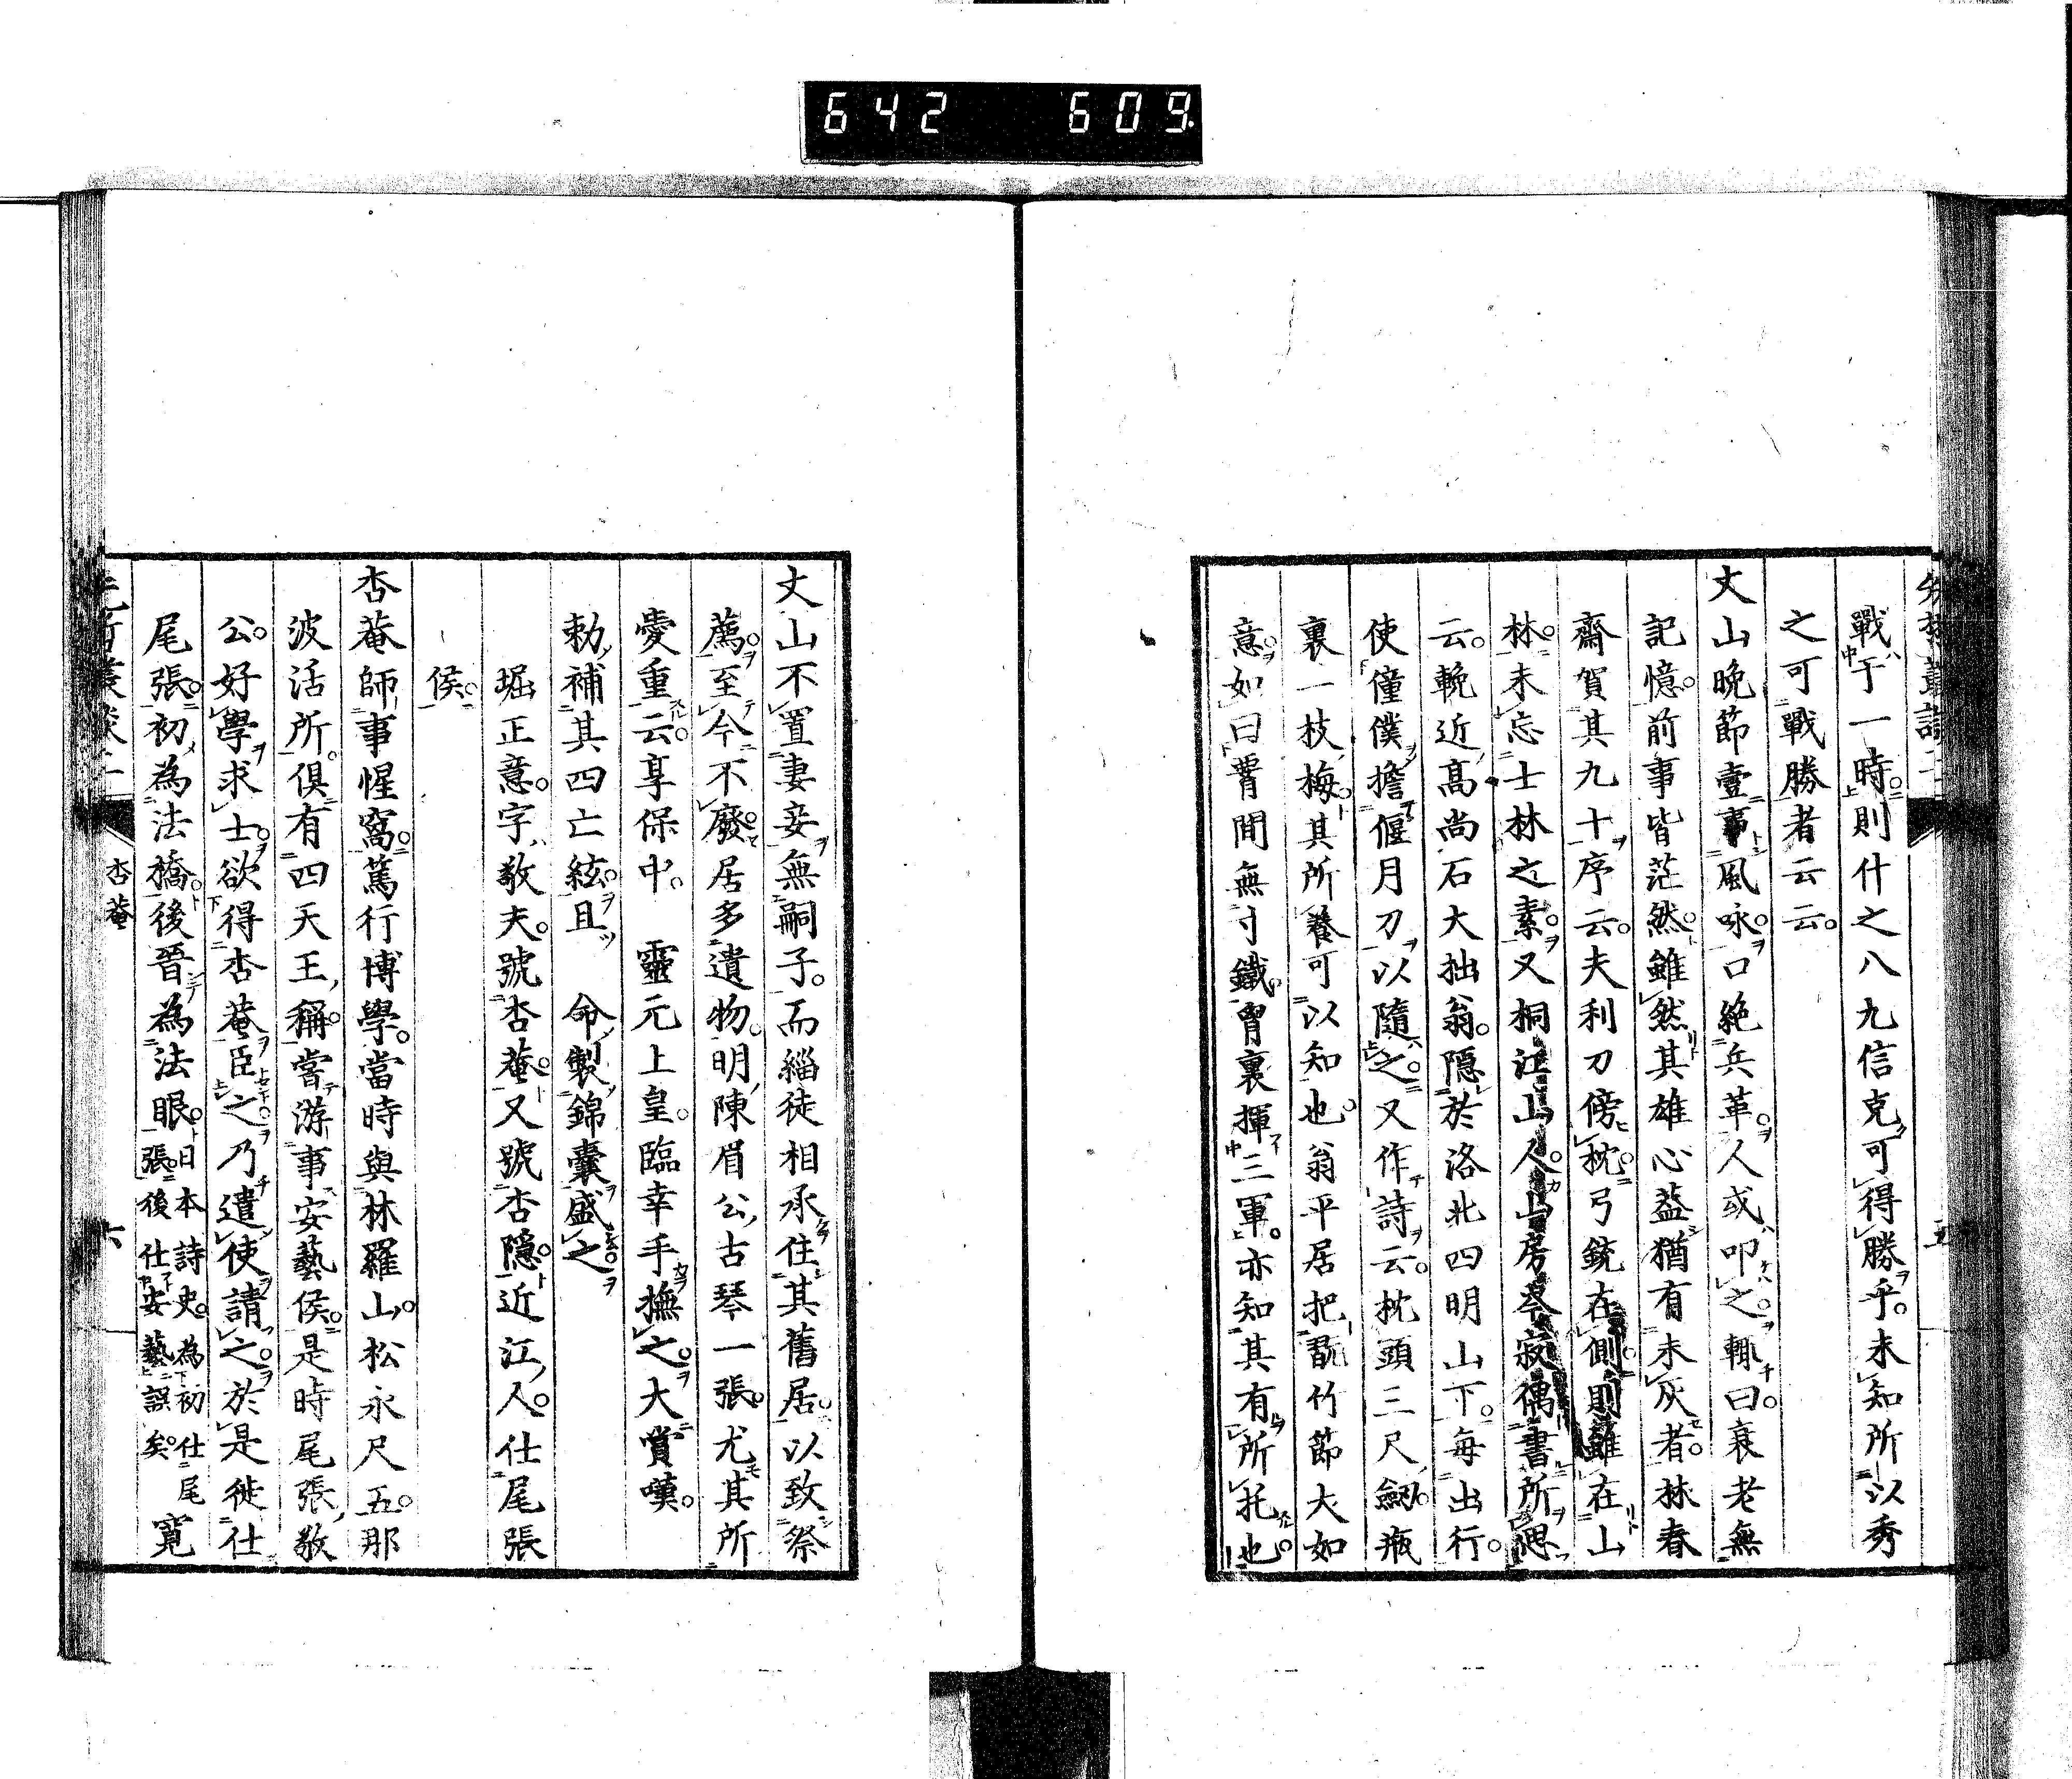 642 609
戰于一時則什之八九信克可得勝乎未知所以秀
之可戰勝者云云
丈山晩節壹事風咏口絶兵革人或叩之輒曰衰老無
記憶前事皆茫然雖然其雄心葢猶有未灰者林春
齋賀其九十序云夫利刀傍枕弓銃在側則雖在山
林未忘士林之素又桐江山人山房岑寂偶書所思
云輓近高尚石大拙翁隱於洛北四明山下每出行
使僮僕擔偃月刀以隨之又作詩云枕頭三尺劔瓶
裏一枝梅其所養可以知也翁平居把翫竹節大如
意如曰胷間無寸鐵胷裏揮三軍亦知其有所托也
丈山不置妻妾無嗣子而緇徒相承住其舊居以致祭
薦至今不廢居多遺物明陳眉公古琴一張尤其所
愛重云享保中 靈元上皇臨幸手撫之大賞嘆
勅補其四亡絃且 命製錦囊盛之
堀正意字敬夫號杏菴又號杏隱近江人仕尾張
侯
杏菴師事惺窩篤行博學當時與林羅山松永尺五那
波活所俱有四天王稱嘗游事安藝侯是時尾張敬
公好學求士欲得杏菴臣之乃遣使請之於是徙仕
尾張初為法橋後晉為法眼日本詩史為初仕尾張後仕安藝誤矣寬
杏菴
六